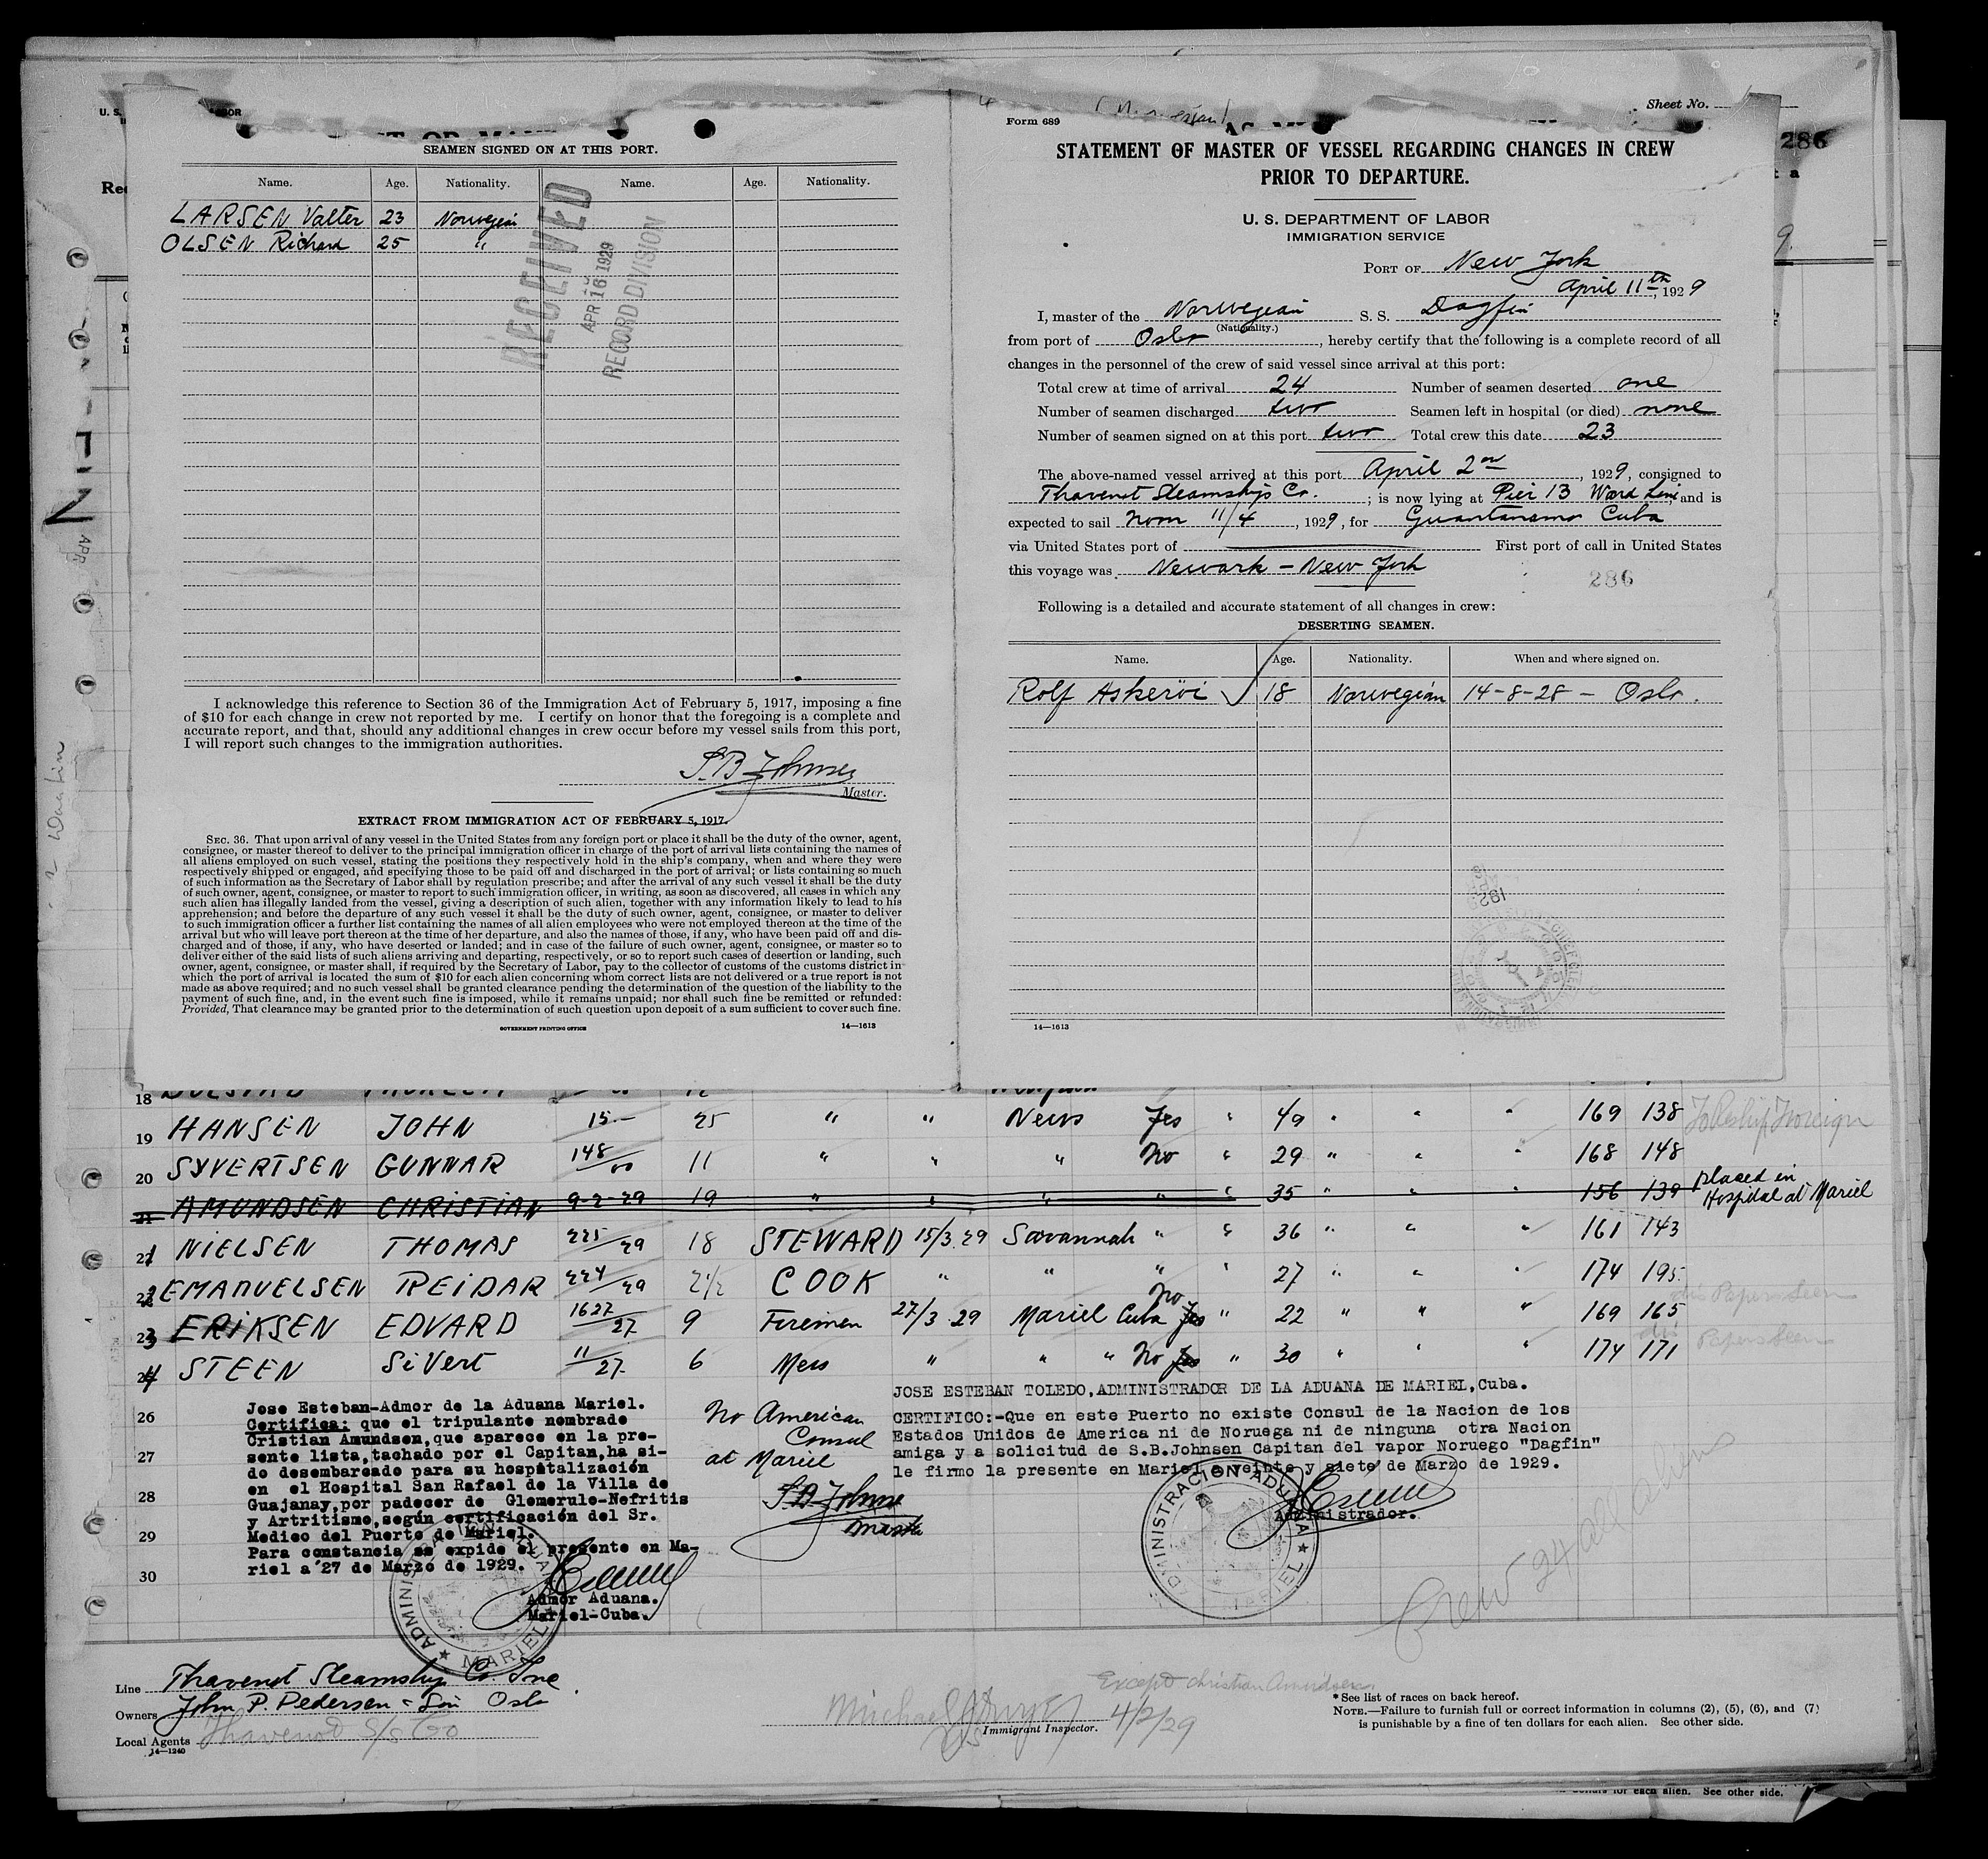 SEAMEN SIGNED ON AT THIS PORT.
Name. Age. Nationality. Name. Age. Nationality.
LARSEN Valter 23 Norwegian
OLSEN Richard 25 "
RECEIVED
APR 16 1929
RECORD DIVISION
I acknowledge this reference to Section 36 of the Immigration Act of February 5, 1917, imposing a fine
of $10 for each change in crew not reported by me. I certify on honor that the foregoing is a complete and
accurate report, and that, should any additional changes in crew occur before my vessel sails from this port,
I will report such changes to the immigration authorities.
S.B. Johnsen
Master.
EXTRACT FROM IMMIGRATION ACT OF FEBRUARY 5, 1917.
SEC. 36. That upon arrival of any vessel in the United States from any foreign port or place it shall be the duty of the owner, agent,
consignee, or master thereof to deliver to the principal immigration officer in charge of the port of arrival lists containing the names of
all aliens employed on such vessel, stating the positions they respectively hold in the ship's company, when and where they were
respectively shipped or engaged, and specifying those to be paid off and discharged in the port of arrival; or lists containing so much
of such information as the Secretary of Labor shall by regulation prescribe; and after the arrival of any such vessel it shall be the duty
of such owner, agent, consignee, or master to report to such immigration officer, in writing, as soon as discovered, all cases in which any
such alien has illegally landed from the vessel, giving a description of such alien, together with any information likely to lead to his
apprehension; and before the departure of any such vessel it shall be the duty of such owner, agent, consignee, or master to deliver
to such immigration officer a further list containing the names of all alien employees who were not employed thereon at the time of the
arrival but who will leave port thereon at the time of her departure, and also the names of those, if any, who have been paid off and dis-
charged and of those, if any, who have deserted or landed; and in case of the failure of such owner, agent, consignee, or master so to
deliver either of the said lists of such aliens arriving and departing, respectively, or so to report such cases of desertion or landing, such
owner, agent, consignee, or master shall, if required by the Secretary of Labor, pay to the collector of customs of the customs district in
which the port of arrival is located the sum of $10 for each alien concerning whom correct lists are not delivered or a true report is not
made as above required; and no such vessel shall be granted clearance pending the determination of the question of the liability to the
payment of such fine, and, in the event such fine is imposed, while it remains unpaid; nor shall such fine be remitted or refunded:
Provided, That clearance may be granted prior to the determination of such question upon deposit of a sum sufficient to cover such fine.
GOVERNMENT PRINTING OFFICE 14—1613
Sheet No.
Form 689
286
STATEMENT OF MASTER OF VESSEL REGARDING CHANGES IN CREW
PRIOR TO DEPARTURE.
U. S. DEPARTMENT OF LABOR
IMMIGRATION SERVICE
PORT OF New York
April 11th, 1929
I, master of the Norwegian S. S. Dagfin
(Nationality.)
from port of Oslo, hereby certify that the following is a complete record of all
changes in the personnel of the crew of said vessel since arrival at this port:
Total crew at time of arrival 24 Number of seamen deserted one
Number of seamen discharged two Seamen left in hospital (or died) none
Number of seamen signed on at this port two Total crew this date 23
The above-named vessel arrived at this port April 2nd, 1929, consigned to
Thavenot Steamship Co.; is now lying at Pier 13 Ward Line, and is
expected to sail noon 11/4, 1929, for Guantanamo Cuba
via United States port of First port of call in United States
this voyage was Newark - New York
286
Following is a detailed and accurate statement of all changes in crew:
DESERTING SEAMEN.
Name. Age. Nationality. When and where signed on.
Rolf Askeröi 18 Norwegian 14-8-28 - Oslo.
14—1613
18
19 HANSEN JOHN 15- 25 " " News Yes " 49 " " " 169 138 To Reship Foreign
20 SYVERTSEN GUNNAR 148/00 11 " " " No " 29 " " " 168 148
21 AMUNDSEN CHRISTIAN 9-2-29 19 " " " " " 35 " " " 156 139 placed in
Hospital at Mariel
NIELSEN THOMAS 225/29 18 STEWARD 15/3 29 Savannah " " 36 " " " 161 143
EMANUELSEN REIDAR 224/29 2½ COOK " " " " 27 " " " 174 195
ERIKSEN EDVARD 1627/27 9 Firemen 27/3 29 Mariel Cuba No Yes " 22 " " " 169 165 Papers Seen
STEEN SiVert 11/27 6 Mess " " " No Yes " 30 " " " 174 171 Papers Seen
26
27
28
29
30
Jose Esteban-Admor de la Aduana Mariel.
Certifica: que el tripulante nombrado
Cristian Amundsen,que aparece en la pre-
sente lista,tachado por el Capitan,ha si-
do desembarcado para su hospitalización
en el Hospital San Rafael de la Villa de
Guajanay,por padecer de Glomerulo-Nefritis
y Artritismo,según certificación del Sr.
Medico del Puerto de Mariel.
Para constancia se expide el presente en Ma-
riel a 27 de Marzo de 1929.
Admor Aduana.
Mariel-Cuba.
ADMINISTRACION ADUANA MARIEL
No American
Consul
at Mariel
S.B. Johnsen
Master
JOSE ESTEBAN TOLEDO,ADMINISTRADOR DE LA ADUANA DE MARIEL,Cuba.
CERTIFICO:-Que en este Puerto no existe Consul de la Nacion de los
Estados Unidos de America ni de Noruega ni de ninguna otra Nacion
amiga y a solicitud de S.B.Johnsen Capitan del vapor Noruego "Dagfin"
le firmo la presente en Mariel a veinte y siete de Marzo de 1929.
Administrador.
ADMINISTRACION ADUANA MARIEL
Crew 24 all aliens
Line Thavenot Steamship Co. Inc.
Owners John P. Pedersen & Son Oslo
Local Agents Thavenot S/S Co
14—1240
Except Christian Amundsen
Immigrant Inspector. 4/2/29
*See list of races on back hereof.
NOTE.—Failure to furnish full or correct information in columns (2), (5), (6), and (7)
is punishable by a fine of ten dollars for each alien. See other side.
for each alien. See other side.